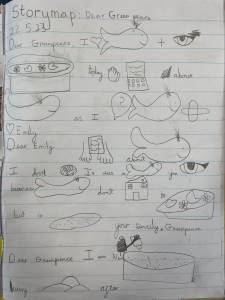 Storymap: Dear Greenpeace
22.5.23
Dear Greenpeace, I +
today about
as I ?
Emily
Dear Emily
about
I don't is was a you
because don't in
but in
your sincerely, Greenpeace
Dear Greenpeace I
after